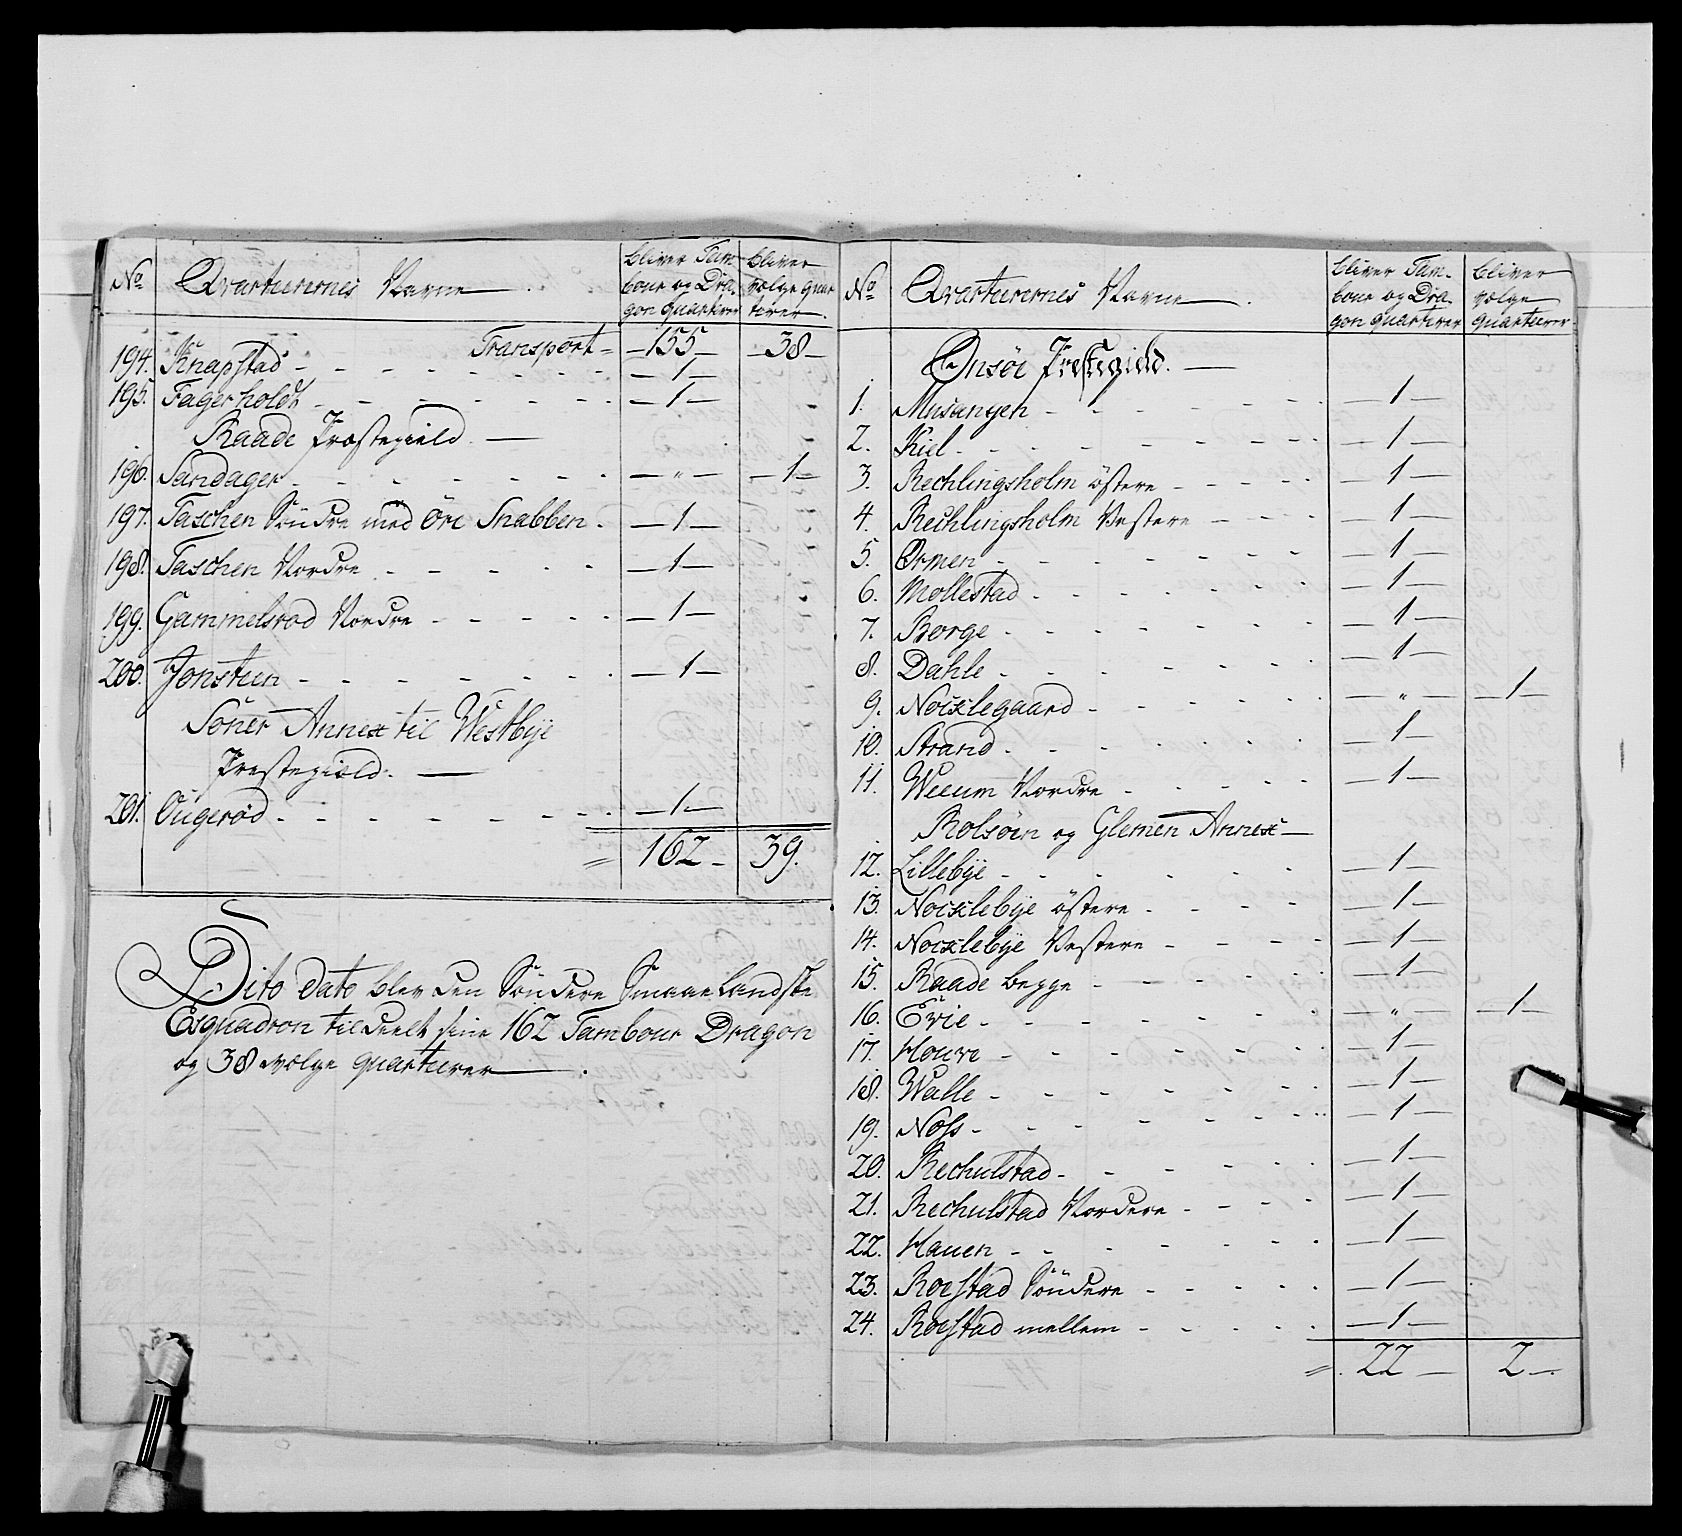 No Qvarterernes Navne
bliver Tam
bour og Dra
gon quarterer
bliver
vælge quar
terer.
Transport = 155 38
194. Knapstad 1
195. Fagerholdt 1
Raade Præstegield.
196. Sandager " 1
197. Taschen Söndre med Öre Snabben 1
198. Taschen Nordre 1
199. Gammelsrod Nordre 1
200. Jonsteen 1
Soner Annex til Westbÿe
Præstegield.
201. Ougerød 1
= 162 39.
Dito Dato blev den Söndere Smaaelandske
Esquadron tildeelt sine 162 Tambour Dragon
og 38 vælge quarterer.
No Qvarterernes Navne.
bliver Tam-
bour og Dra
gon quarterer
bliver
vælge
quarterer.
Onsöe Præstegield.
1. Musangen 1
2. Kiel 1
3. Rechlingsholm östere 1
4. Rechlingsholm Vestere 1
5. Ormen 1
6. Mollestad 1
7. Borge 1
8. Dahle 1
9. Noixlegaard " 1
10. Strand 1
11. Weeum Nordre 1
Rolsöen og Glemen Annex
12. Lillebÿe 1
13. Noixlebÿe östere 1
14. Noixlebÿe Vestere 1
15. Raade begge 1
16. Evie " 1
17. Houve 1
18. Walle 1
19. Noss 1
20. Rechulstad 1
21. Rechulstad Nordere 1
22. Hauen 1
23. Roestad Söndere 1
24. Roestad mellem 1
= 22 2